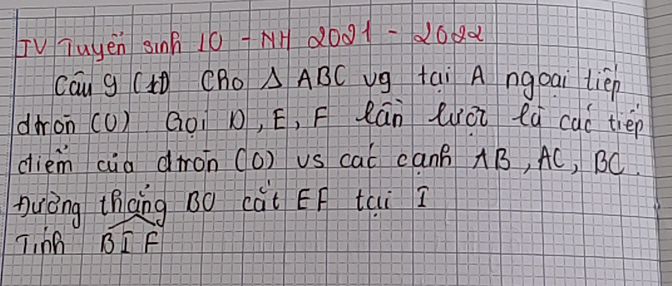 IV Tuyển sinh 10 - NH 2021 - 2022
Câu 9 (1đ) Cho Δ ABC vg tại A ngoại tiếp
đtròn (O). Gọi D, E, F lần lượt là các tiếp
điểm của đtròn (O) vs các cạnh AB, AC, BC.
Đường thẳng BO cắt EF tại I
Tính BIF